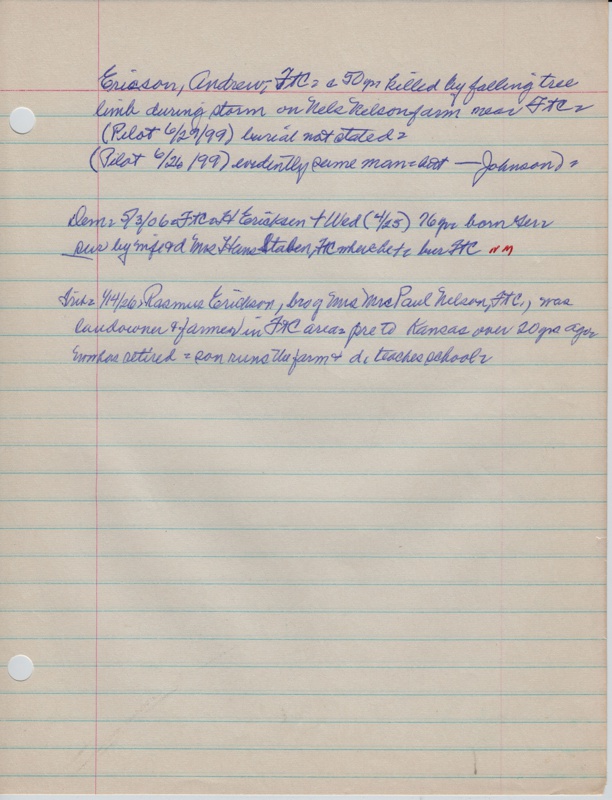 Ericson, Andrew, FtC = a 50 yr killed by falling tree
limb during storm on Nels Nelson farm near FtC =
(Pilot 6/29/99) burial not stated =
(Pilot 6/26/99) evidently same man = — Johnson) =
Dem = 5/3/06 = FtC = H Ericksen + Wed (4/25) 76 yr born
sur by & d Mrs Hans Staben, FtC where he + bur FtC
4/14/06 = Rasmus Erickson, bro of Mrs Mrs Paul Nelson, FtC, was
landowner & farmer in FtC area = pre to Kansas over 20 yrs ago =
retired = son runs the farm & d, teaches school =